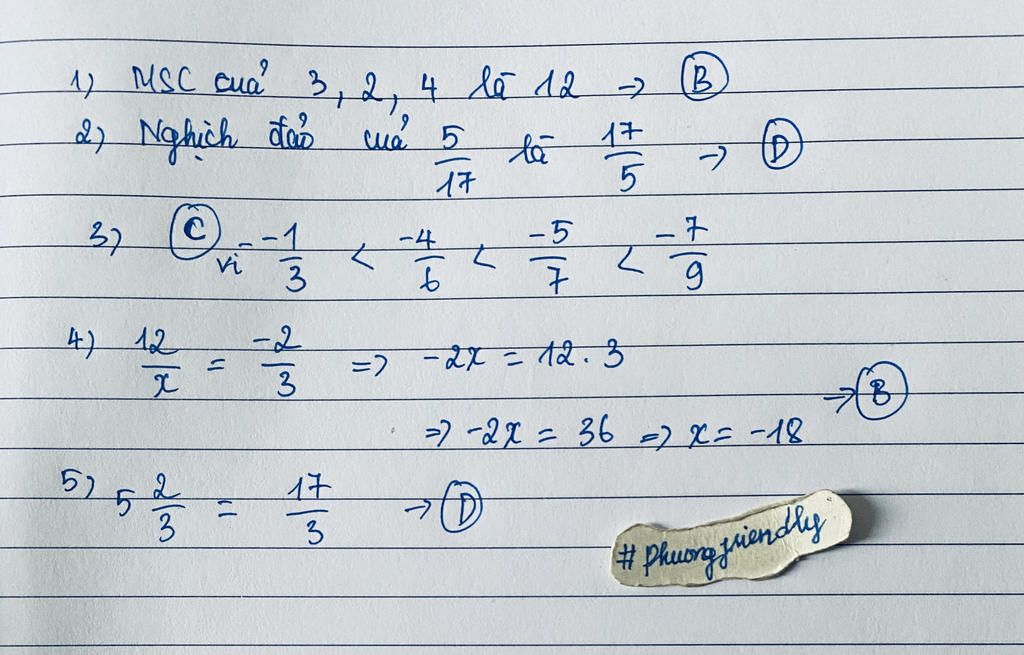 1) MSC của 3, 2, 4 là 12 → B
2) Nghịch đảo của 5/17 là 17/5 → D
3) C vì - -1/3 < -4/6 < -5/7 < -7/9
4) 12/x = -2/3 => -2x = 12 . 3
=> -2x = 36 => x = -18 → B
5) 5 2/3 = 17/3 → D
#phuongfriendly